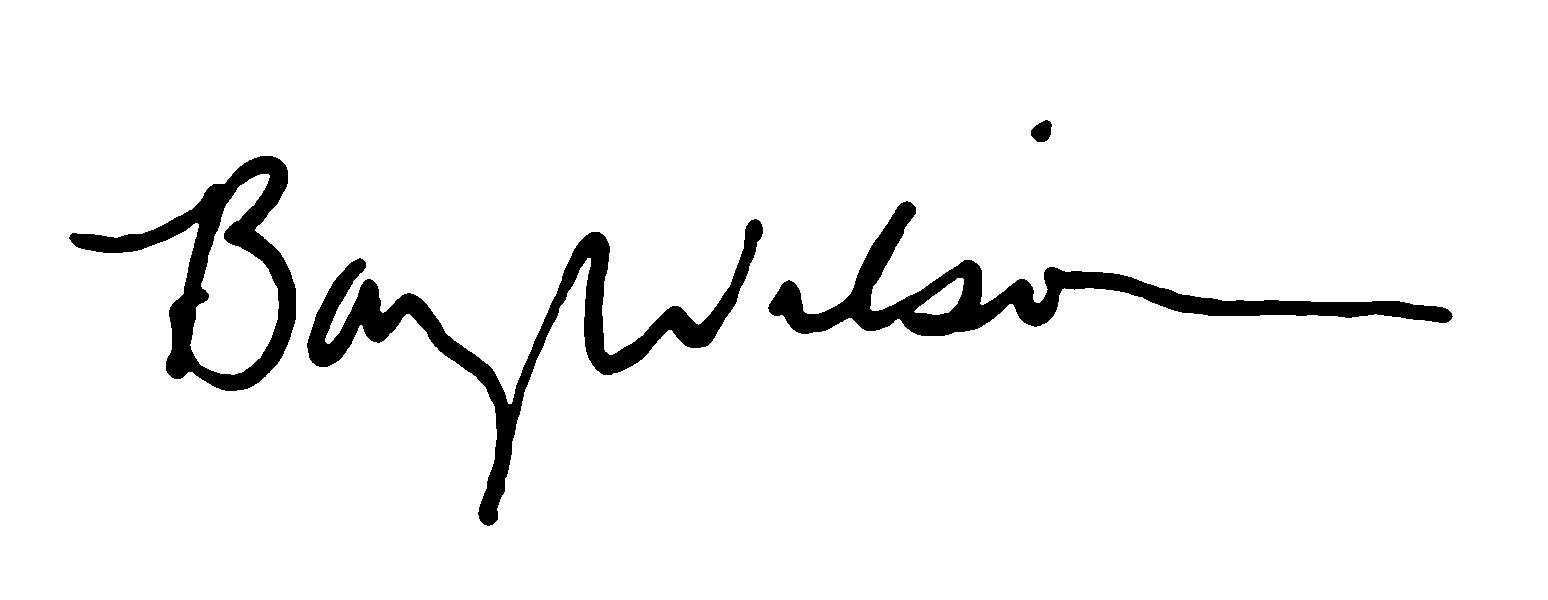 Barry Wilson